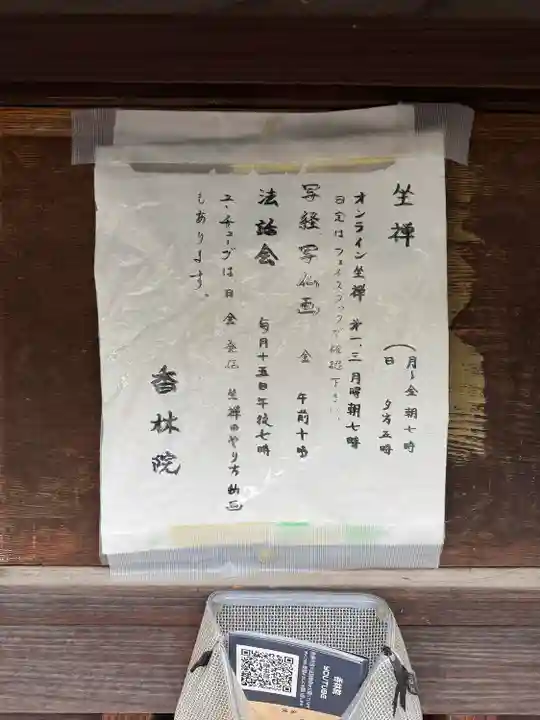 坐禅
月〜金 朝七時
日 夕方五時
オンライン坐禅 第一、三 月曜朝七時
日定はフェイスブックで確認下さい。
写経写仏画 金 午前十時
法話会 毎月十五日午後七時
ユーチューブは日 金 発信 坐禅のやり方動画
もあります。
香林院
YOUTUBE